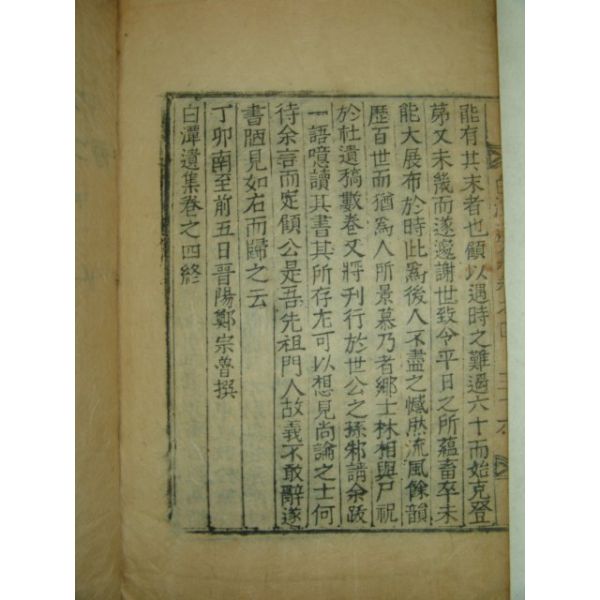 能有其末者也顧以遇時之難過六十而始克登
第又未幾而遂遽謝世致令平日之所蘊畜卒未
能大展布於時此爲後人不盡之憾然流風餘韻
歷百世而猶爲人所景慕乃者鄕士林相與尸祝
於社遺稿數卷又將刊行於世公之孫邾請余跋
一語噫讀其書其所存尤可以想見尚論之士何
待余言而定顧公是吾先祖門人故義不敢辭遂
書陋見如右而歸之云
丁卯南至前五日晉陽鄭宗魯撰
白潭遺集卷之四終